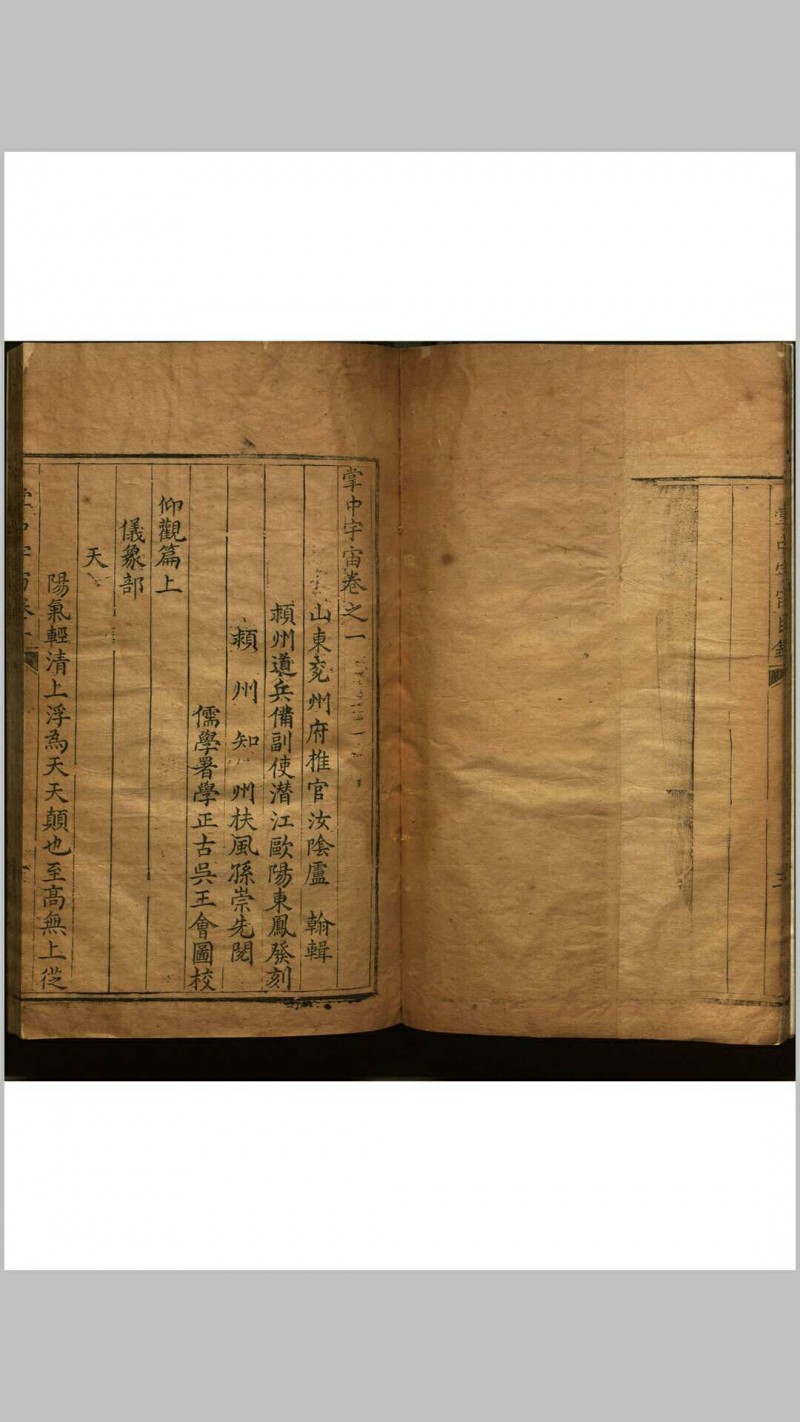 掌中宇宙卷之一
山東兗州府推官汝陰盧　翰輯
潁州道兵備副使潛江歐陽東鳳發刻
潁州知州扶風孫崇先閱
儒學署學正古吳王會圖校
仰觀篇上
儀象部
天
陽氣輕清上浮為天天顛也至高無上從